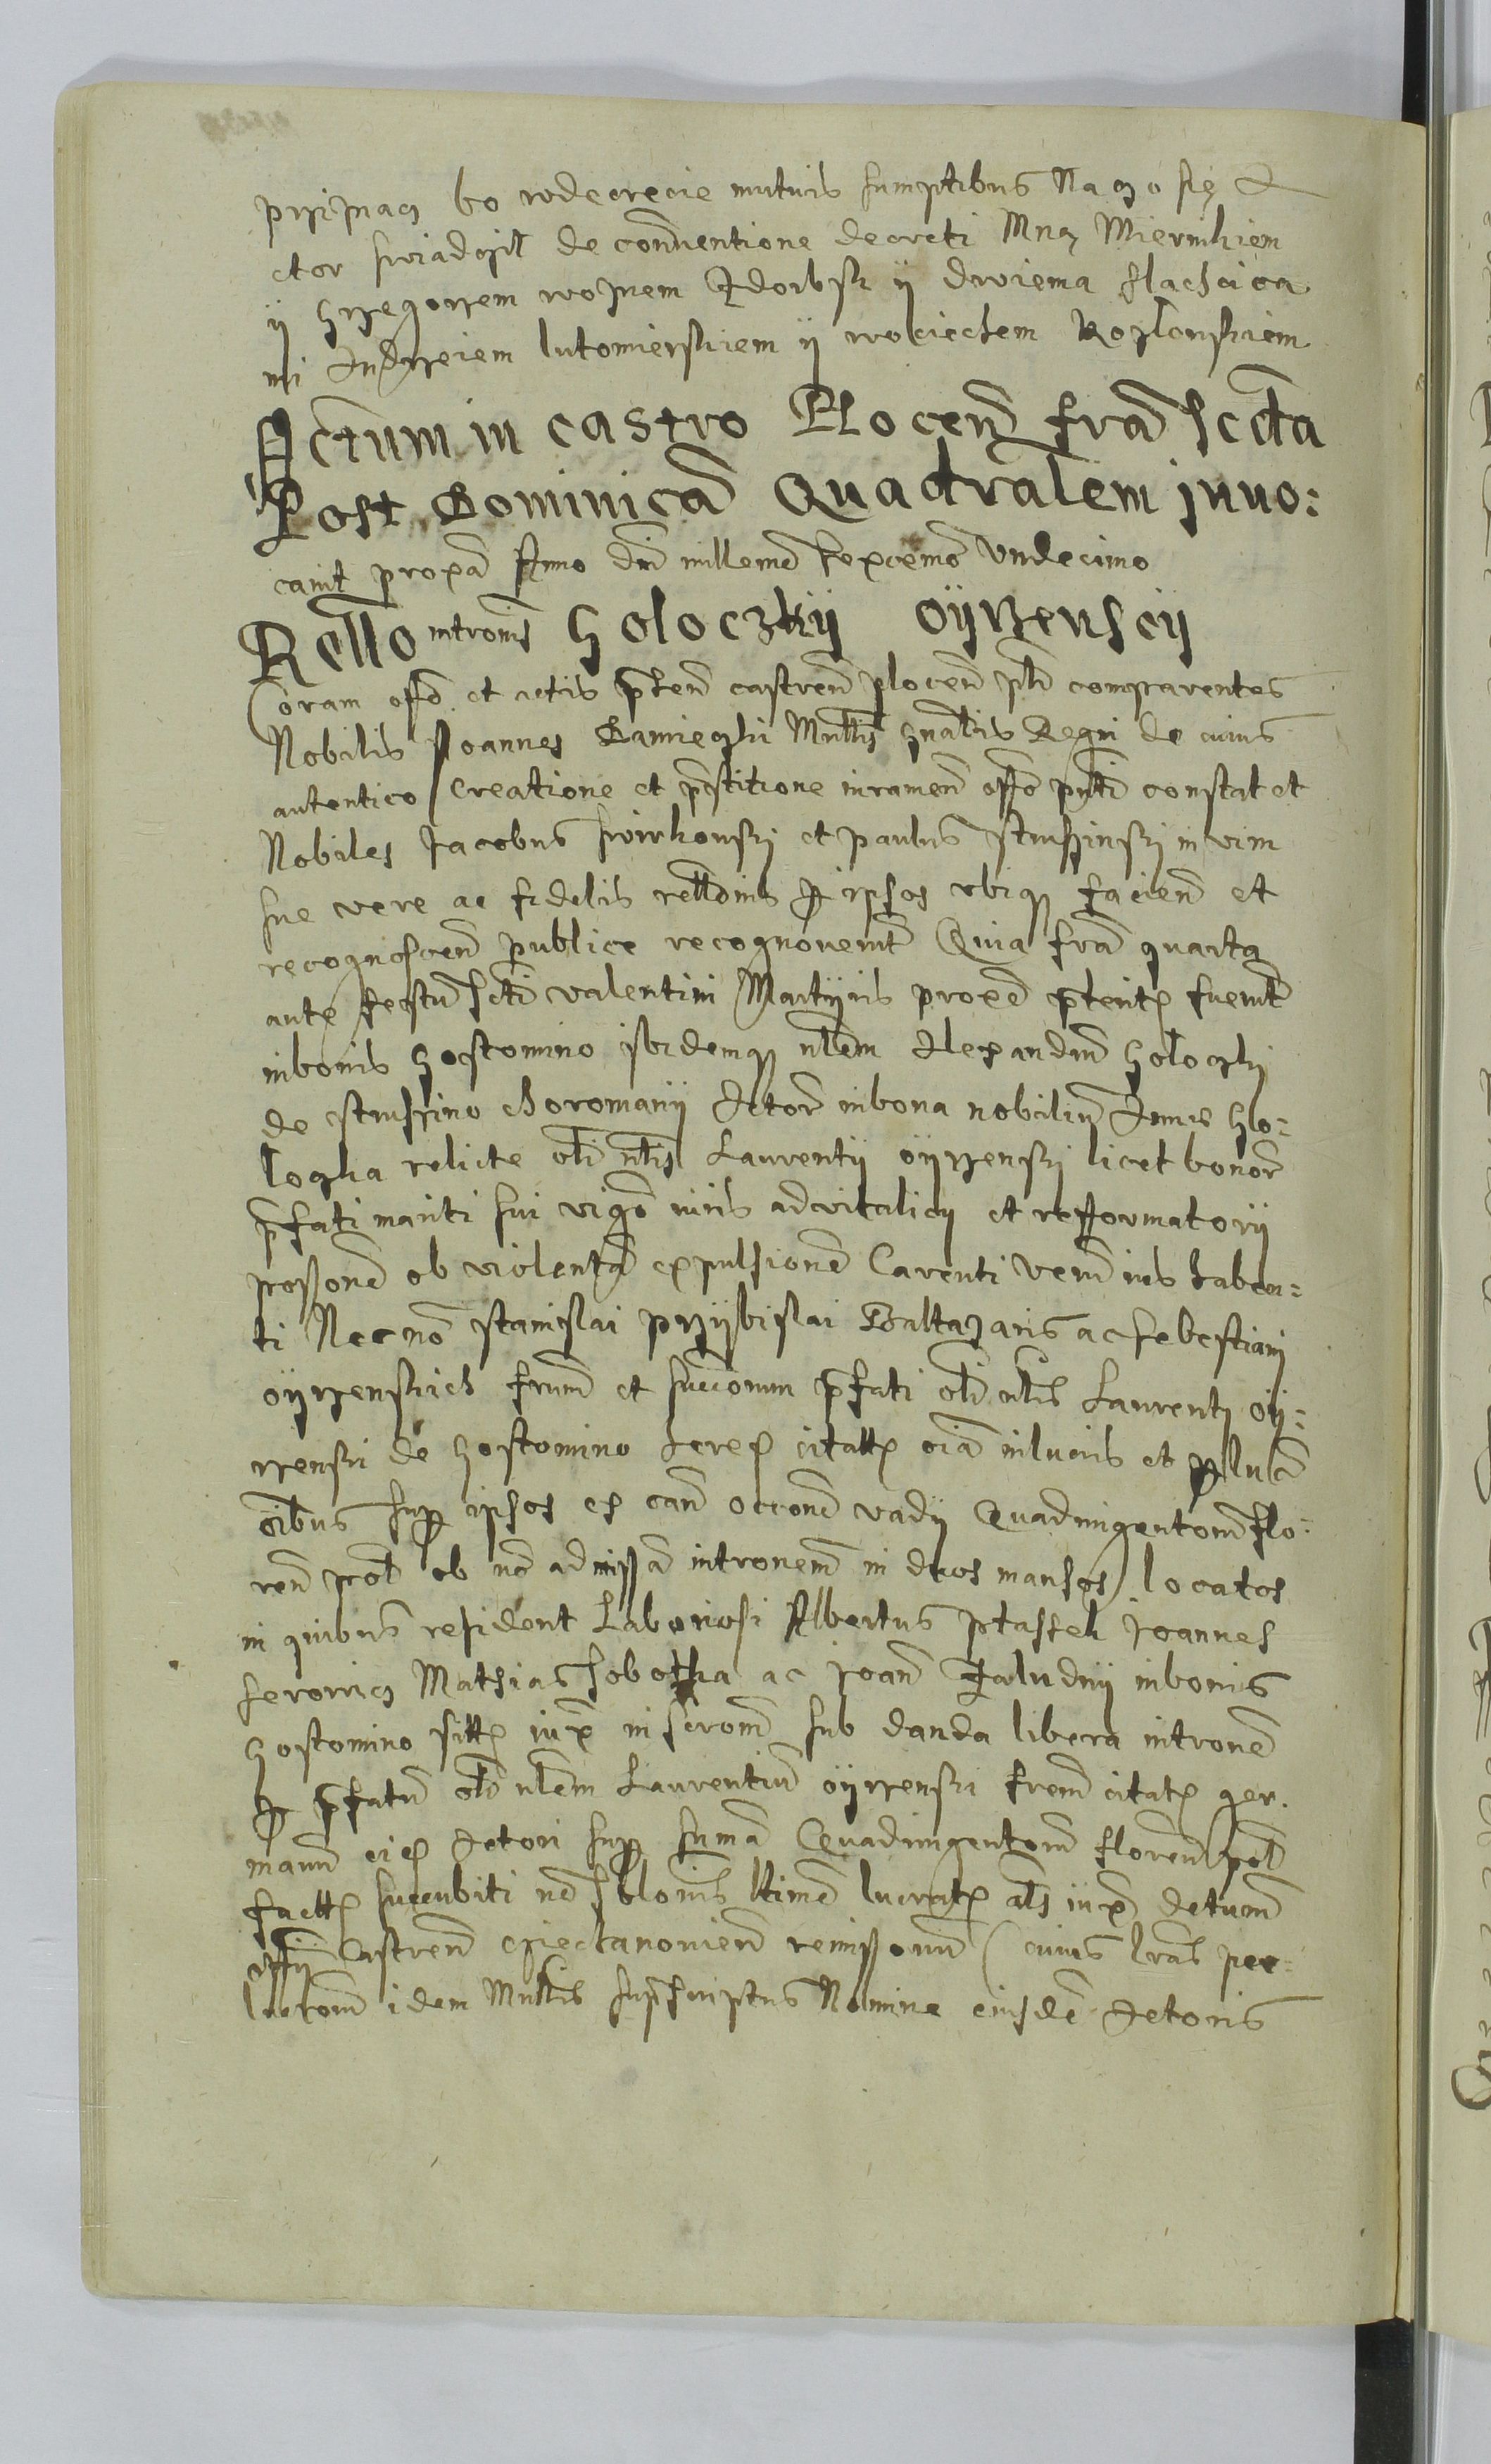 przÿnacz bo wdecrecie mutuis sumptibus na czo się A
ctor swiadczil de conventione decreti Mną Miernikiem
ÿ Grzegorzem woznem Zdorbsk ÿ dwiema slachcica
mi Andrzeiem lutomierskiem ÿ wociechem Kozlowskiem
Actum in castro Plocen fra scda
Post Dominica Quadralem inuo:
cauit proxa Anno dni millemo sexcemo Vndecimo
Rello intromis Holoczkÿ oÿrzenscÿ
Coram offo et actis pnten castren plocen plr comparentes
Nobilis Joannes Damieczki Mnlis gnalis Regni de cuius
autentico Creatione et prestitione iuramen offo pnti constat et
Nobiles Jacobus swirkouski et paulus strussinski in vim
sue vere ac fidelis rellonis p ipsos vbiqz facien et
recognoscen publice recognouerut Quia fra quarta
ante festu scti valentini Martÿris proxe ptenter fuerut
inbonis Gostomino ibidemqz nlem Alexandru holoczki
de strussino choromanÿ Actore inbona nobiliu Anne Hlo:
loczka relicte oli nlis Laurentÿ oÿrzenski licet bonor
prefati mariti sui vigo iuris advitalicÿ et refformatorÿ
possone ob violenta expulsione Carenti veru ius haben:
ti Nec no stanislai przÿbislai Baltazaris ac sebestiani
oÿrzenskich frum et succorum prefati oli nlis Laurentÿ oÿ:
rzenski de Gostomino hered citatt oia inlucris et p lucr
oibus sup ipsos ex can occone vadÿ Quadringentoru flo:
ren pol ob no admissa intronem in duos mansos locatos
in quibus resident Laboriosi Albertus ptassek Joannes
serowicz Mathias sobotka ac Joan Zaludnÿ inbonis
Gostomino sitt iux inscrom sub danda libera introne
p prefatu oli nlem Laurentiu oÿrzenski frem citat ger.
manu eid Actori sup suma Quadringentoru floren pol
fact succubiti no sblonis ltime lucrat als iux detum
offÿ Castren Ciechanouien remissoriu cuius lras per:
lucrom idem Mnlis suprascriptus Nomine eiusde Actoris